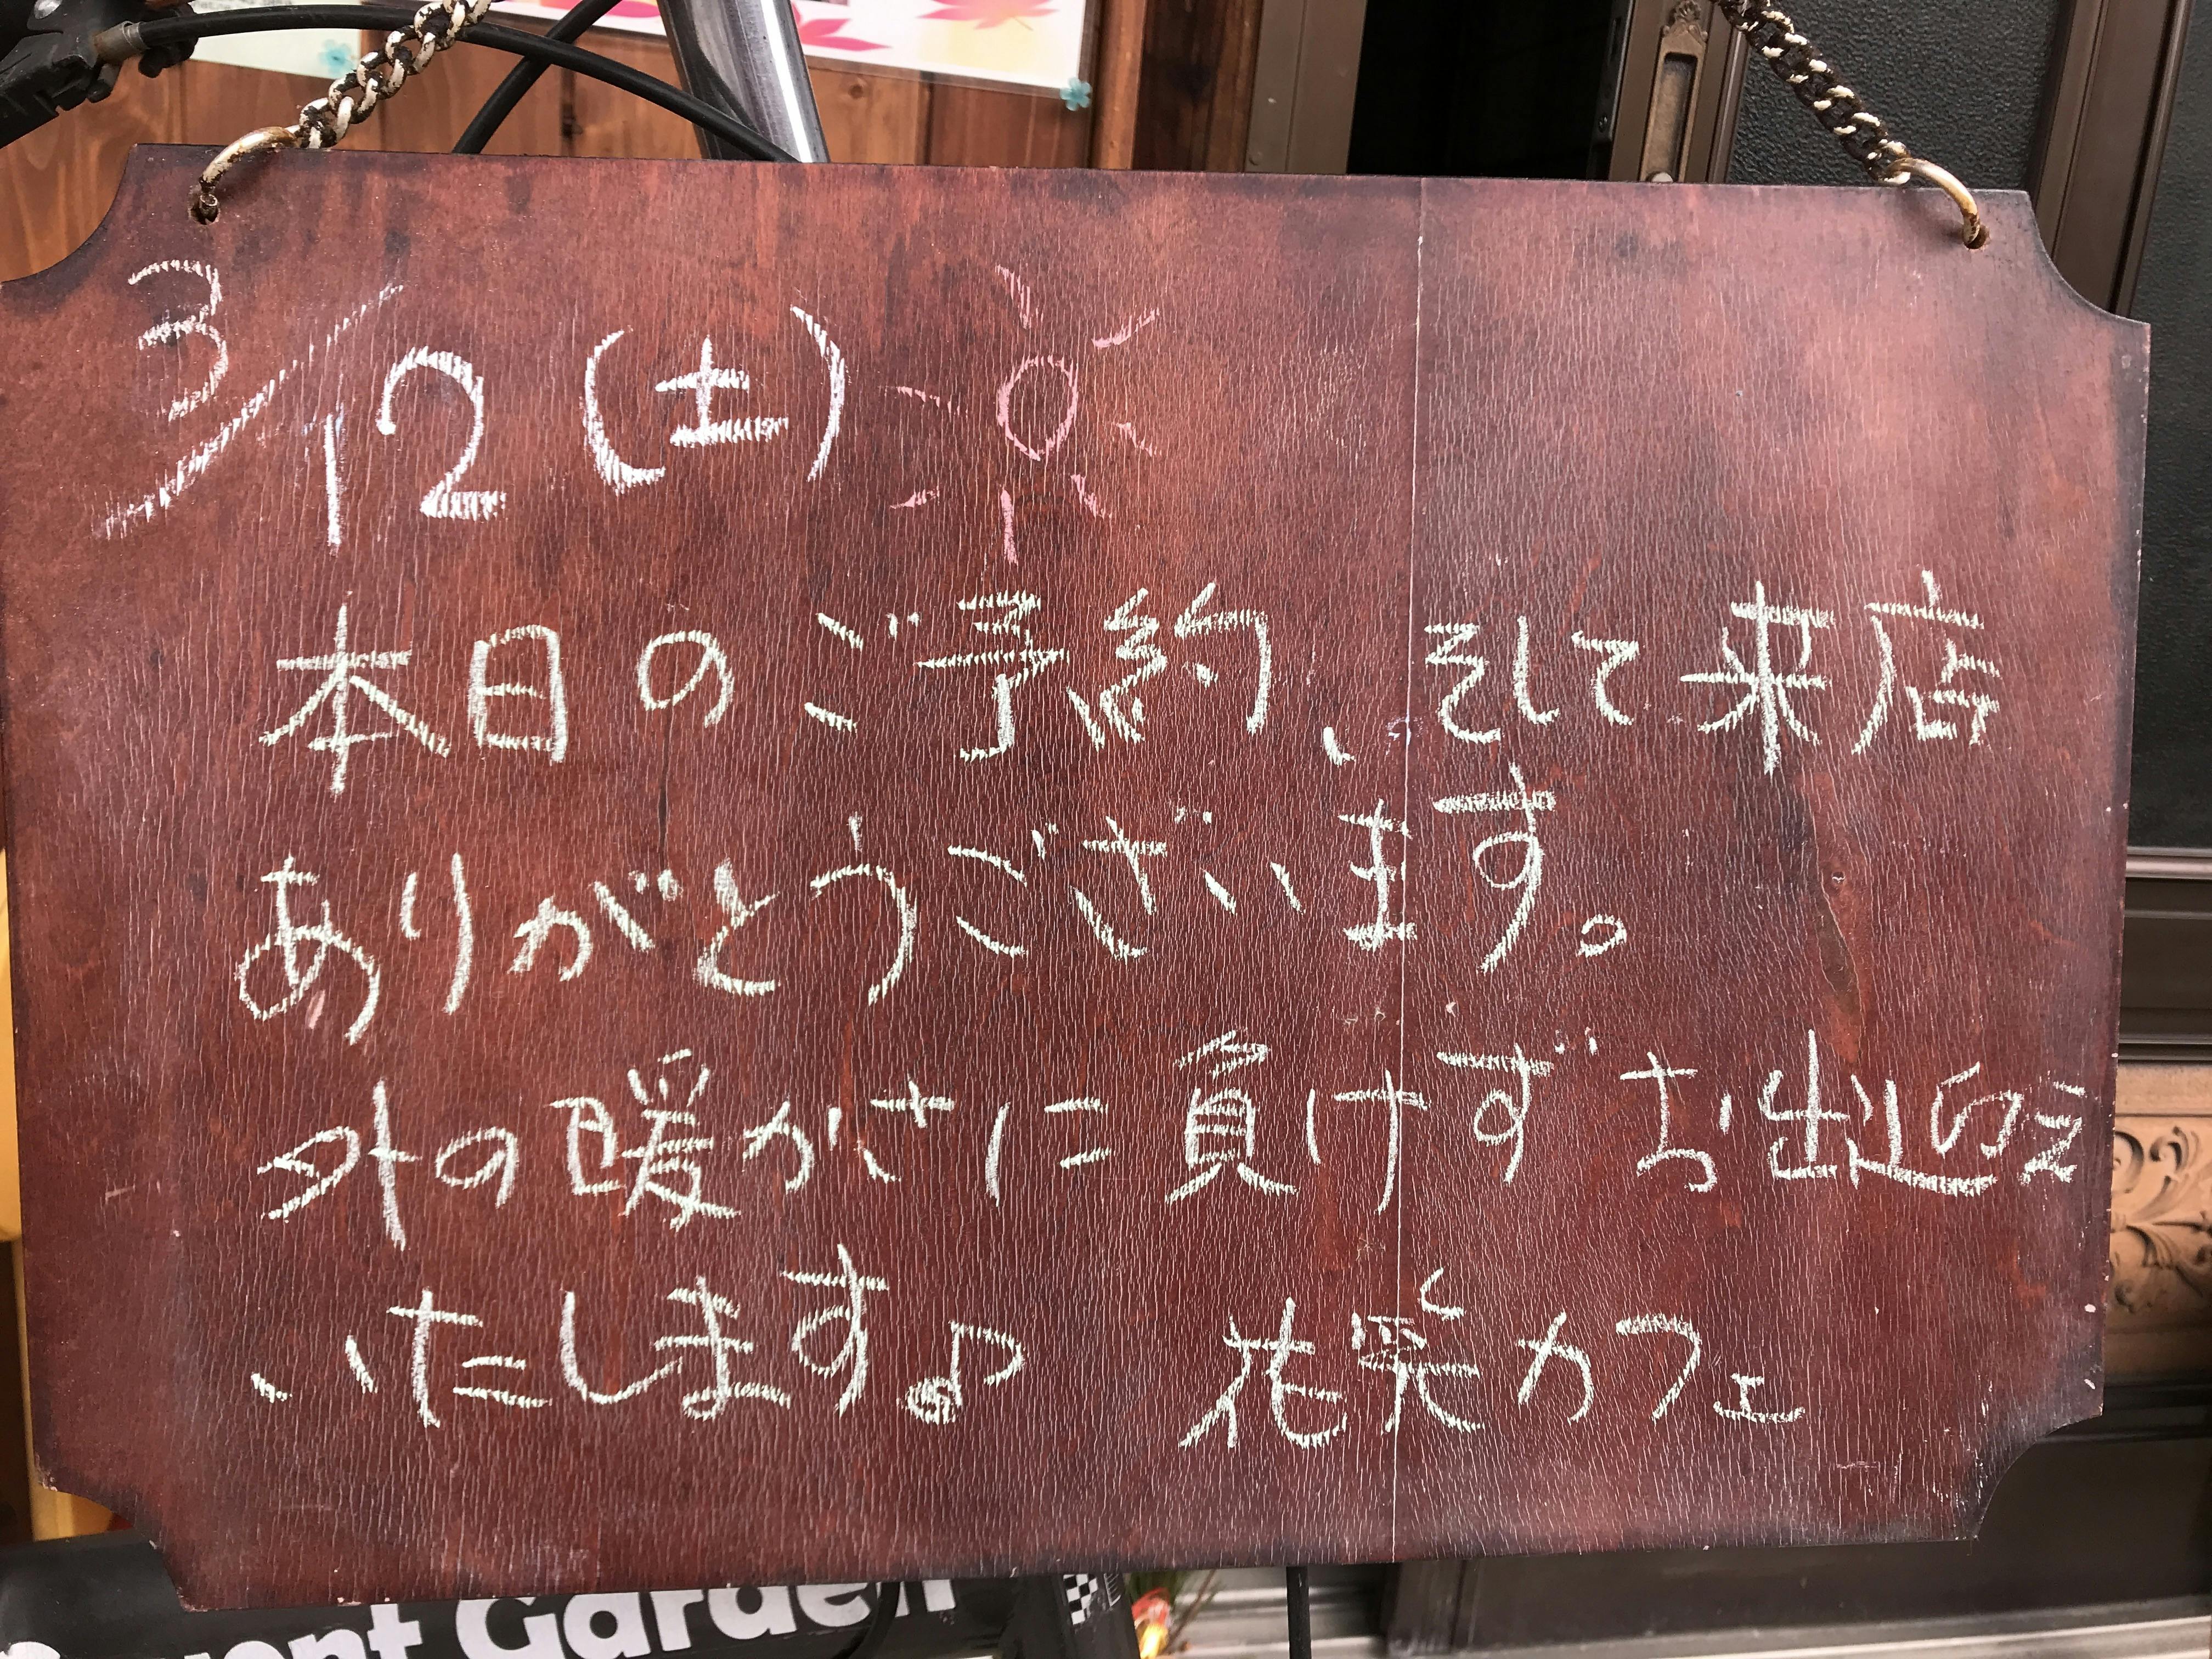 3/12(土)
本日のご予約、そして来店
ありがとうございます。
外の暖かさに負けずお出迎え
いたします♪ 花栗カフェ
vent Garden